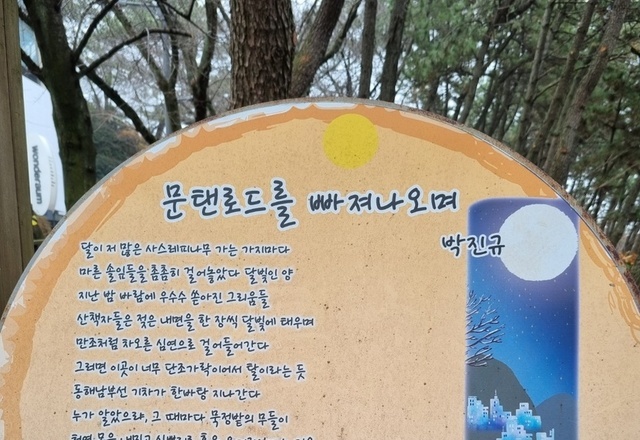 wonderaum
문탠로드를 빠져나오며
박진규
달이 저 많은 사스레피나무 가는 가지마다
마른 솔잎들을 촘촘히 걸어놓았다 달빛인 양
지난 밤 바람에 우수수 쏟아진 그리움들
산책자들은 젖은 내면을 한 장씩 달빛에 태우며
만조처럼 차오른 심연으로 걸어들어간다
그러면 이곳이 너무 단조가락이어서 탈이라는 듯
동해남부선 기차가 한바탕 지나간다
누가 알았으랴, 그 때마다 묵정밭의 무들이